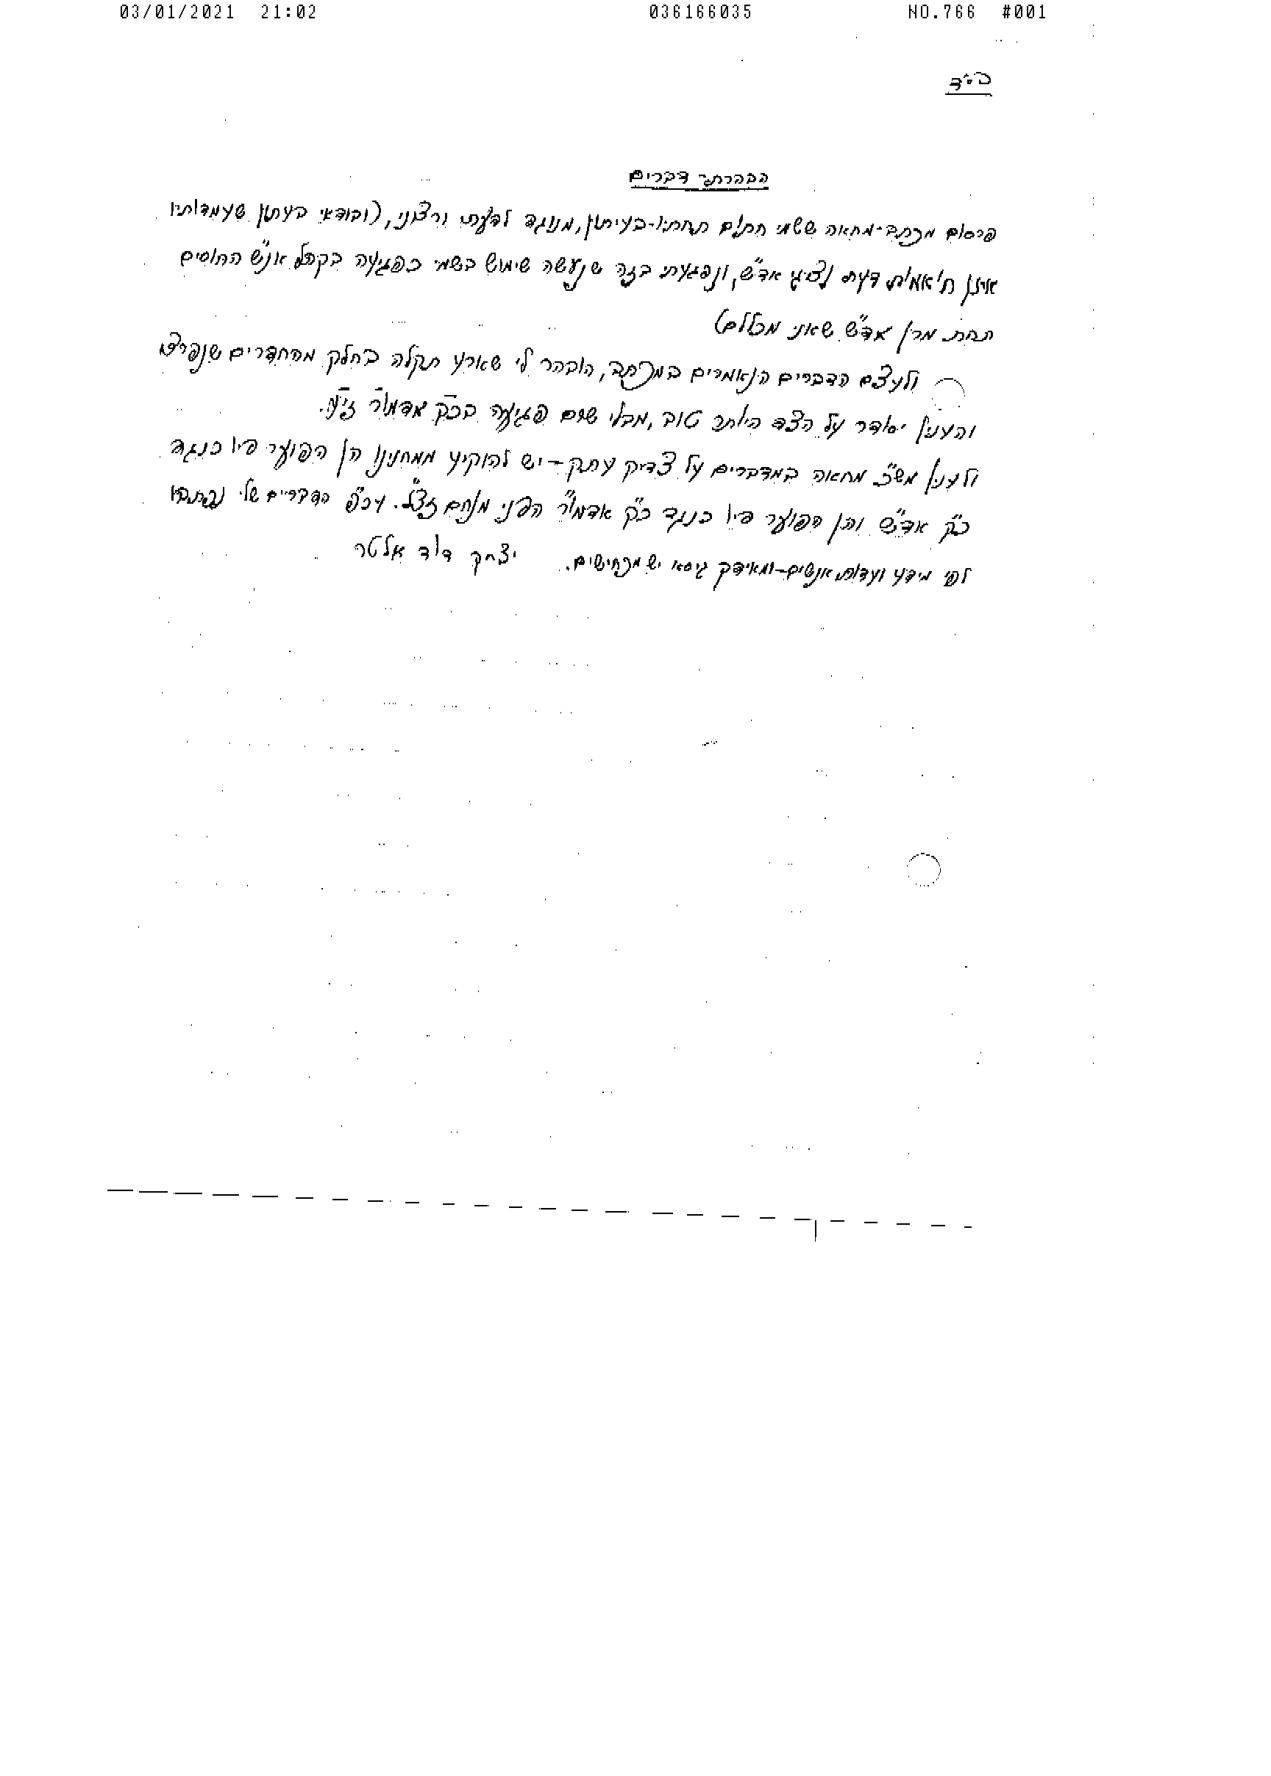 03/01/2021 21:02 036166035 NO.766 #001
בס"ד
הבהרת דברים
פרסום מכתב-מחאה ששמי חתום תחתיו-בעיתון, מנוגד לדעתי ורצוני, (ובודאי בעתון שעמדותיו
אינן תואמות דעת נציגי אד"ש, ונפגעתי בזה שנעשה שימוש בשמי כפגיעה בקהל אנ"ש החוסים
תחת מרן אד"ש שאני מכללם)
ולעצם הדברים הנאמרים במכתב, הובהר לי שארע תקלה בחלק מהחדרים שנפרצו
והענין יסודר על הצד היותר טוב, מבלי שום פגיעה בכ"ק אדמו"ר זי"ע.
ולענין מש"כ מחאה במדברים על צדיק עתק – יש להוקיע ממחנינו הן הפוער פיו כנגד
כ"ק אד"ש והן הפוער פיו כנגד כ"ק אדמו"ר הפני מנחם זצ"ל. ועכ"פ הדברים שלי נכתבו
לפי מידע ועדות אנשים-ומאידך גיסא יש מכחישים. יצחק דוד אלטר